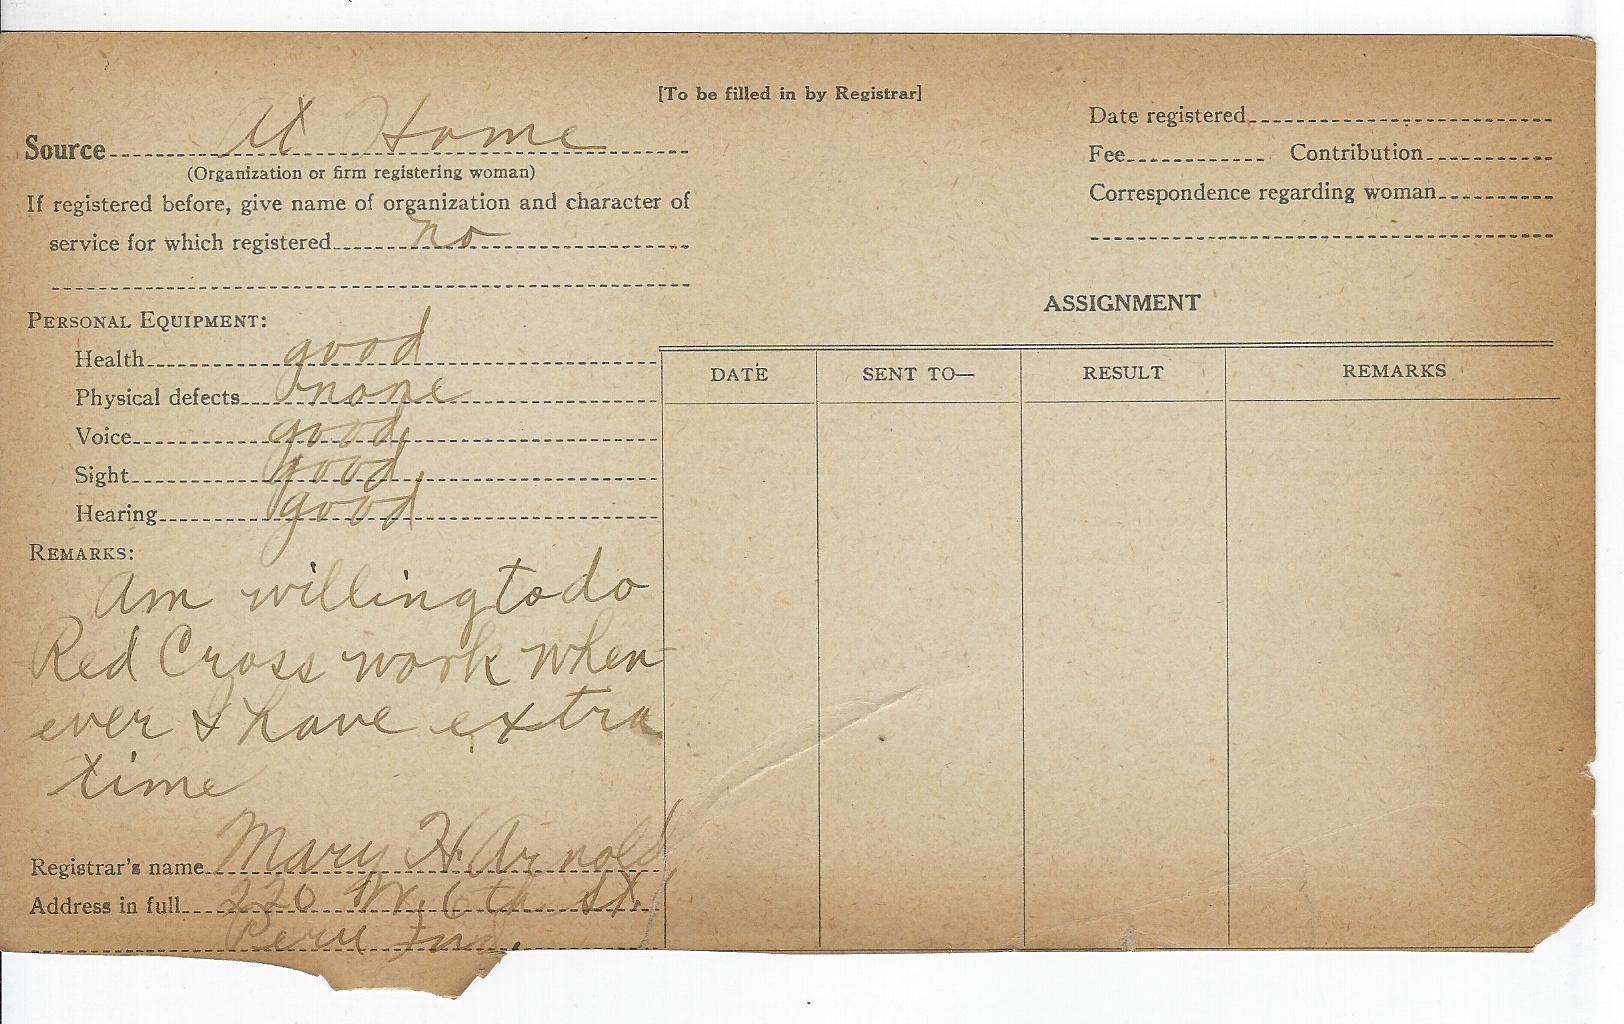 [To be filled in by Registrar]
Source At Home
(Organization or firm registering woman)
If registered before, give name of organization and character of
service for which registered no
PERSONAL EQUIPMENT:
Health good
Physical defects none
Voice good
Sight good
Hearing good
REMARKS:
Am willing to do
Red Cross work when-
ever I have extra
time
Registrar's name Mary H. Arnold
Address in full 220 W. 6th St.
Peru Ind.
Date registered
Fee Contribution
Correspondence regarding woman
ASSIGNMENT
DATE SENT TO— RESULT REMARKS